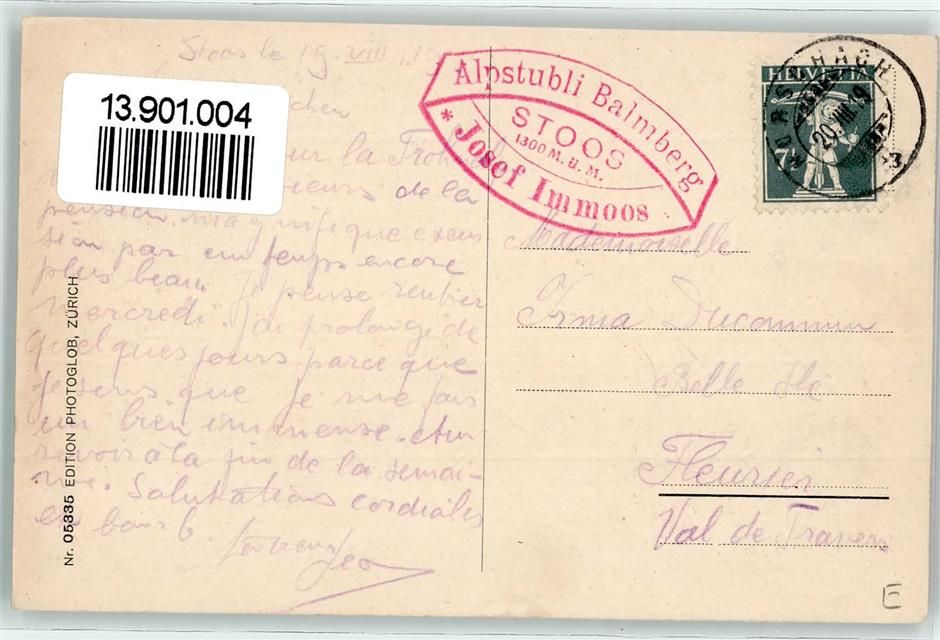 Stoos le 19. VIII. 19
13.901.004
chen
sur la Fron
de la
pension. magnifique excur
sion par un temps encore
plus beau. Je pense rentrer
mercredi. J'ai prolongé de
quelques jours parce que
je sens que je me fais
un bien immense. Au
revoir à la fin de la semai-
ne. Salutations cordiales
et bons b.
Leo
Nr. 05335 EDITION PHOTOGLOB, ZÜRICH
Alpstubli Balmberg
STOOS
1300 M. ü. M.
* Josef Immoos
HELVETIA
7½
MORSCHACH
20.VIII.19
Mademoiselle
Irma Ducommun
Belle Ile
Fleurier
Val de Travers
E